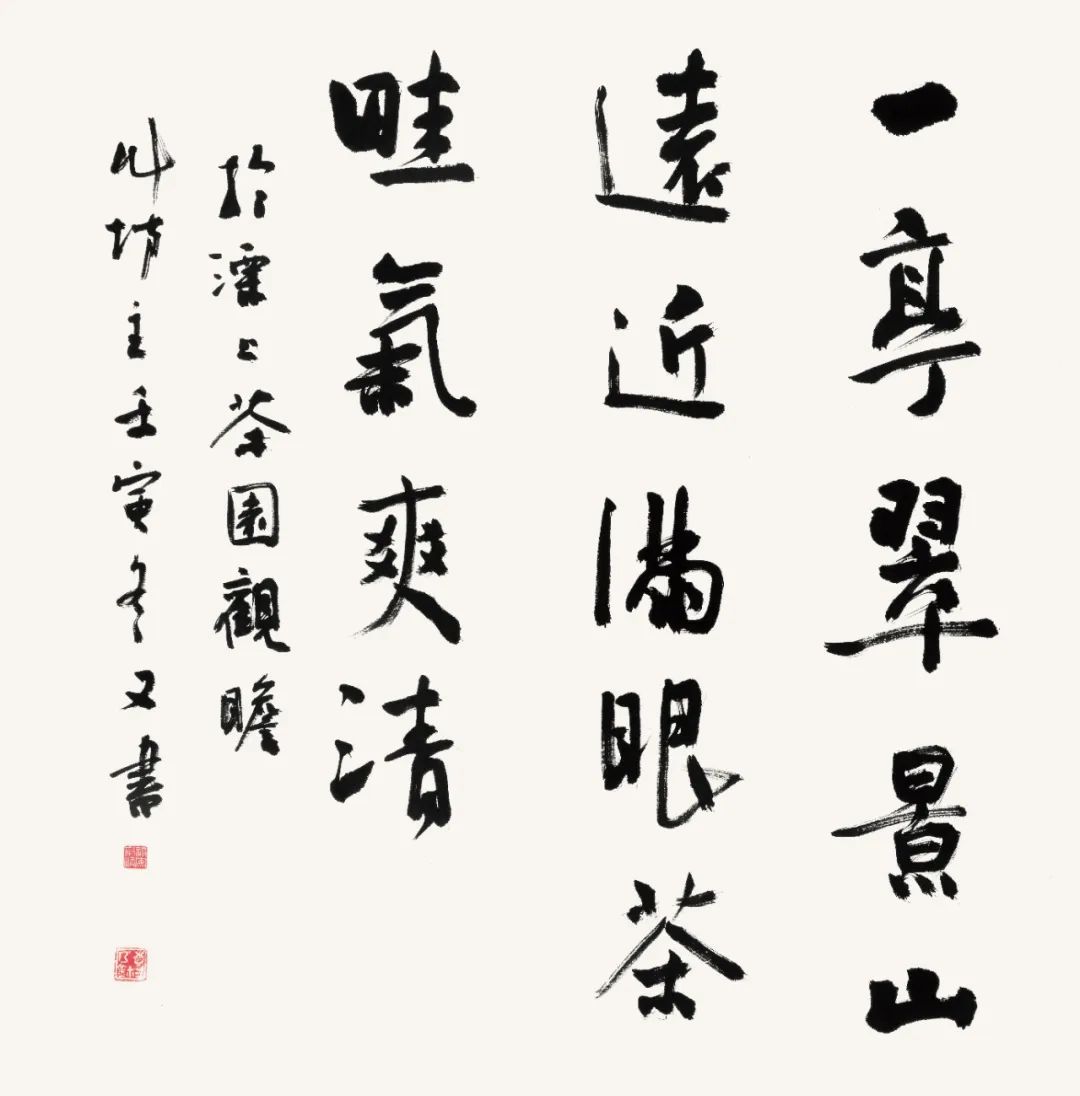 一亭翠景山
遠近滿眼茶
畦氣爽清
於上茶園觀瞻
坊主壬寅冬又書